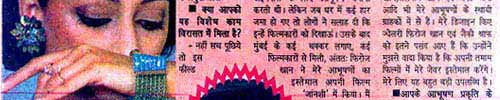 ■ क्या आपको
यह विशेष काम
विरासत में मिला है?
- नहीं सच पूछिये
तो इस
फील्ड
करती थी। लेकिन जब घर में कई हार
जमा हो गए तो लोगों ने सलाह दी कि
इन्हें फिल्मकारों को दिखाऊं। उसके बाद
मुंबई के कई चक्कर लगाए, कई
फिल्मकारों से मिली, अंततः फिरोज
खान ने मेरे आभूषणों का
इस्तेमाल अपनी फिल्म
'जानशीं' में किया। मैं
आदि भी मेरे आभूषणों के स्थायी
ग्राहकों में से हैं। मेरे डिजाइन किए
ज्वैलरी फिरोज खान एवं जैकी श्राफ
को इतने पसंद आए हैं कि उन्होंने
मुझसे वादा किया है कि अपनी तमाम
फिल्मों में मेरे जेवर इस्तेमाल करेंगे।
मेरे लिए यह बहुत बड़ी उपलब्धि है।
■आपके आभूषण प्रकृति के